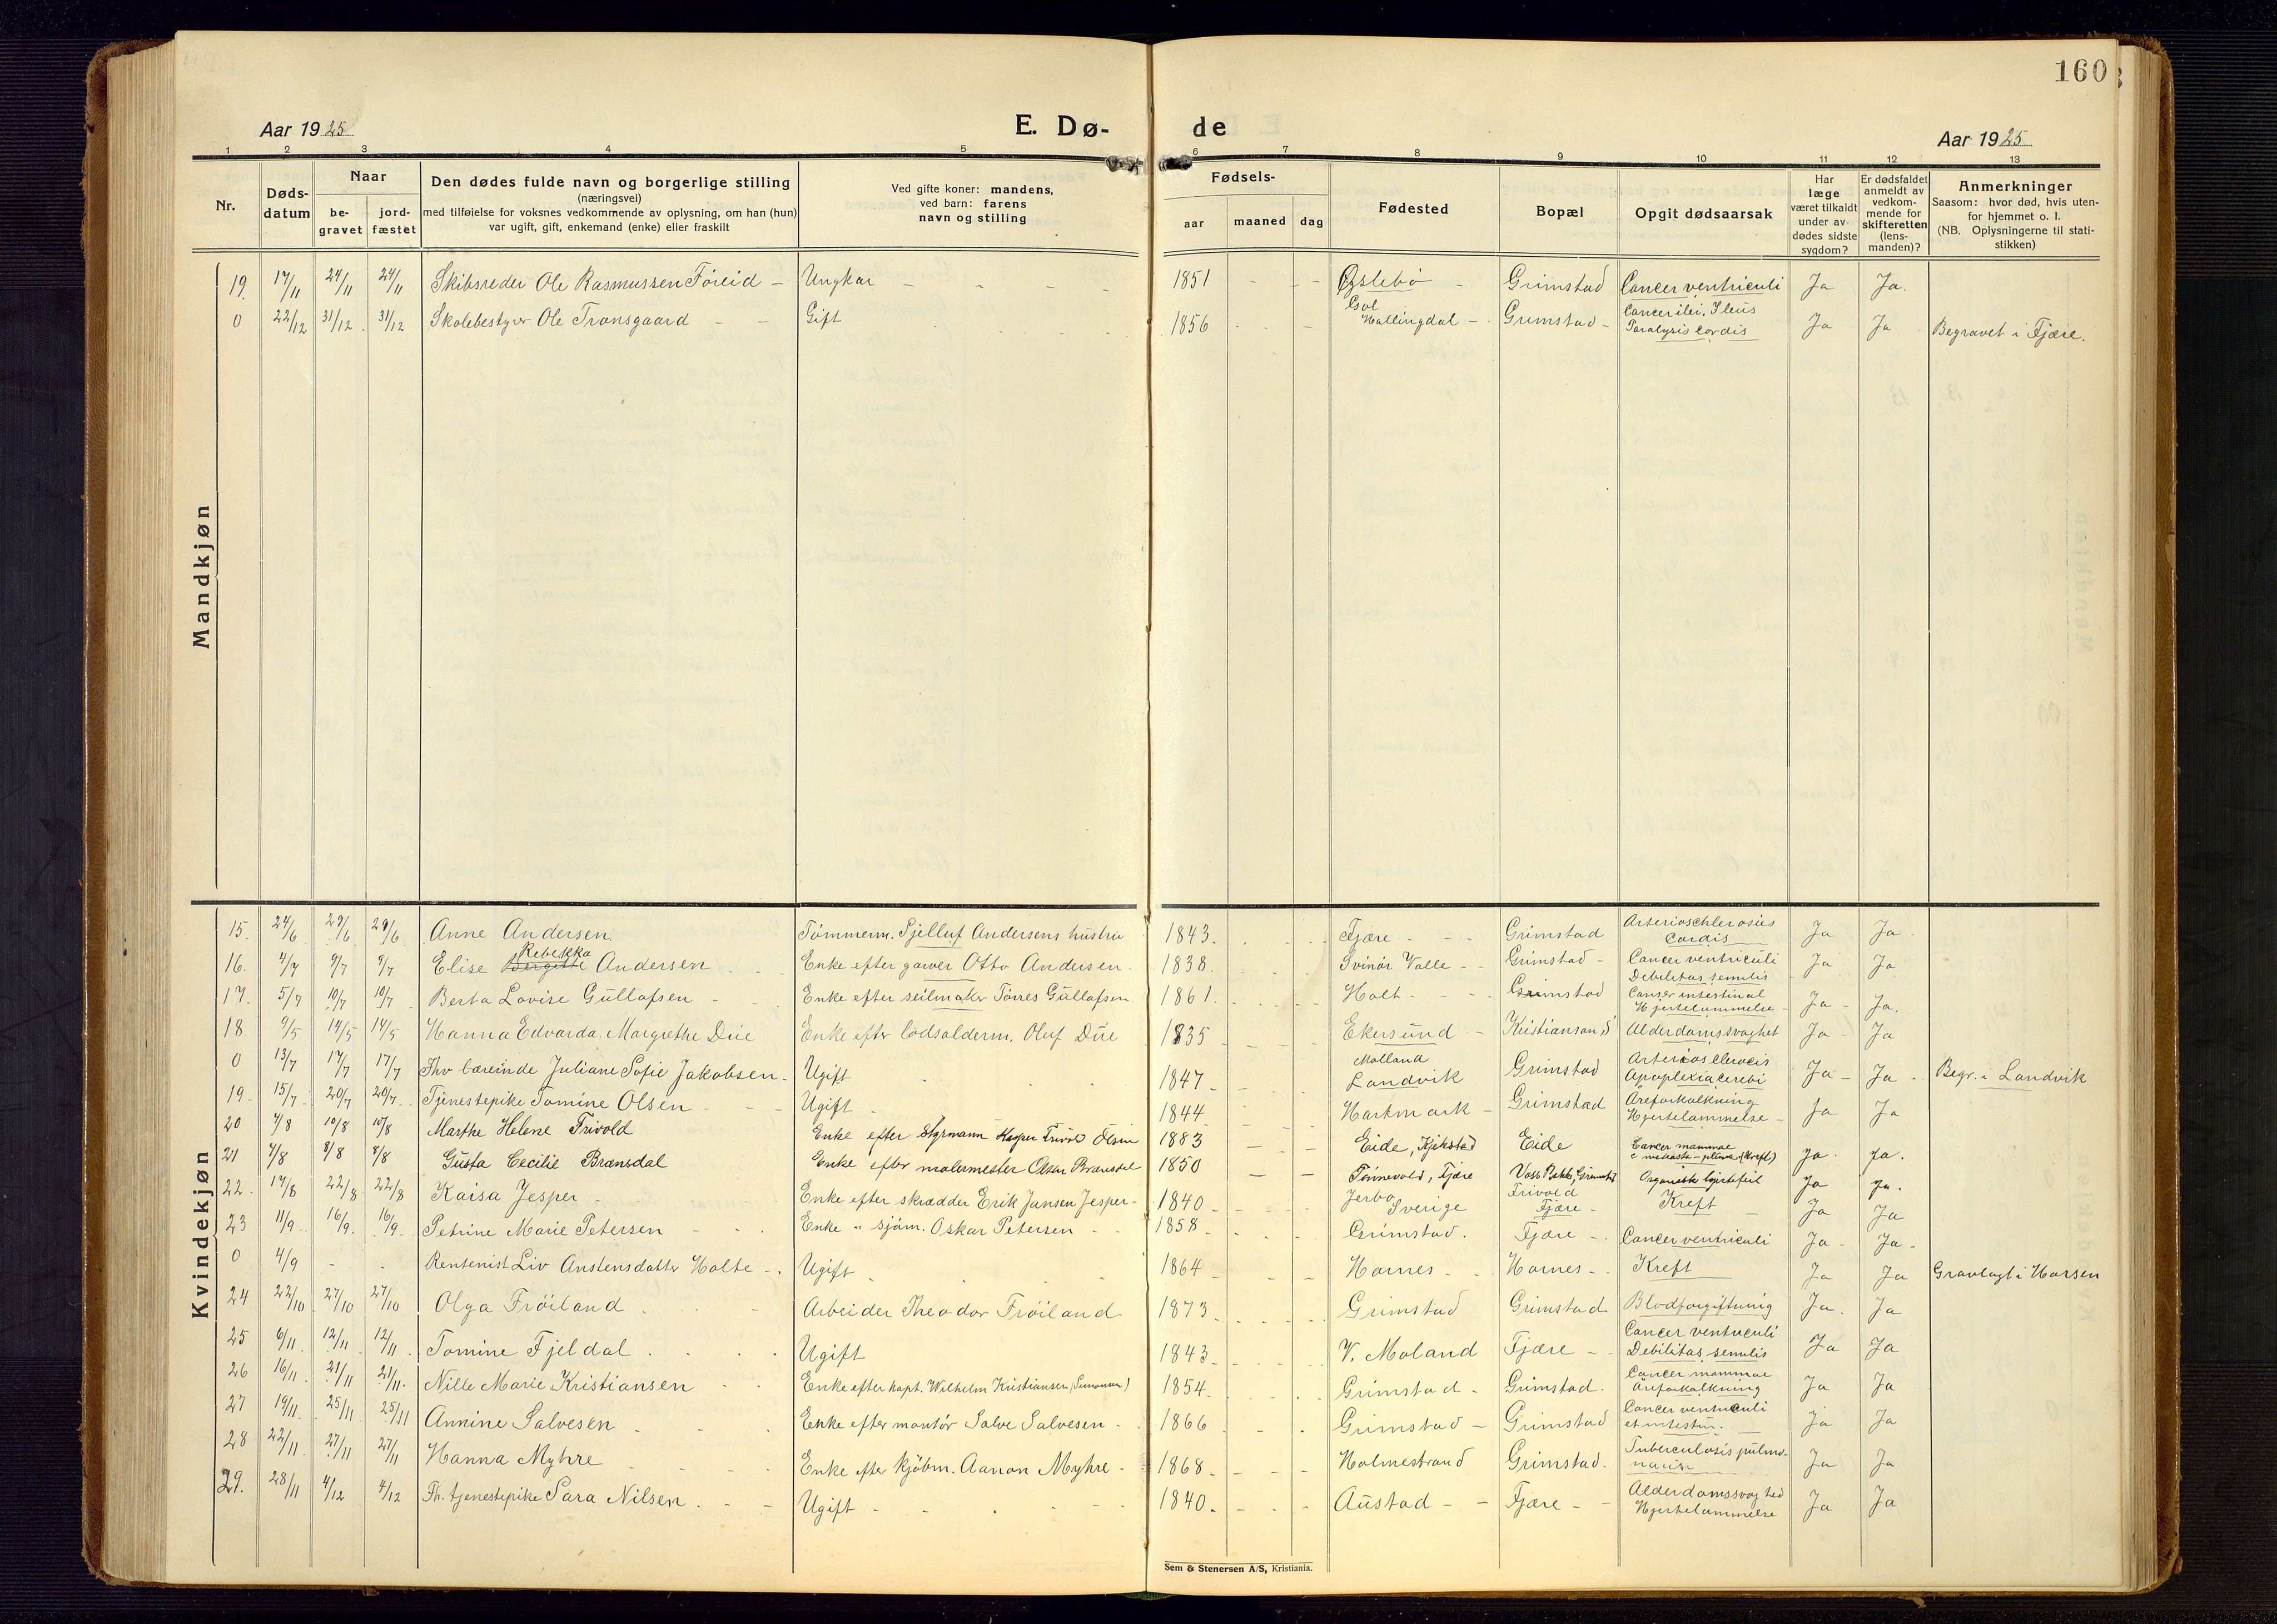 160
Aar 1925 E. Dø- de Aar 1925
1 2 3 4 5 6 7 8 9 10 11 12 13
Nr.
Døds-
datum
Naar
be-
gravet
jord-
fæstet
Den dødes fulde navn og borgerlige stilling
(næringsvei)
med tilføielse for voksnes vedkommende av oplysning, om han (hun)
var ugift, gift, enkemand (enke) eller fraskilt
Ved gifte koner: mandens,
ved barn: farens
navn og stilling
Fødsels-
aar maaned dag
Fødested
Bopæl
Opgit dødsaarsak
Har
læge
været tilkaldt
under av-
dødes sidste
sygdom?
Er dødsfaldet
anmeldt av
vedkom-
mende for
skifteretten
(lens-
manden)?
Anmerkninger
Saasom: hvor død, hvis uten-
for hjemmet o. l.
(NB. Oplysningerne til stati-
stikken)
Mandkjøn
19. 17/11 24/11 24/11 Skibsreder Ole Rasmussen Föreid - Ungkar - 1851 - - - Øslebö - Grimstad Cancer ventriculi Ja Ja.
0 22/12 31/12 31/12 Skolebestyrer Ole Transgaard - - Gift 1856 Gol Hallingdal - Grimstad - Cancer ilei, Ileus Paralysis cordis Ja Ja Begravet i Fjære.
Kvindekjøn
15. 24/6 29/6 29/6 Anne Andersen Tömmerm. Pjelluf Andersens hustru 1843. Fjære - Grimstad Arterioschlerosus Cordis Ja Ja
16. 4/7 9/7 9/7 Elise Bergitte Rebekka Andersen Enke efter garver Otto Andersen. 1838. Svinör Valle - Grimstad - Cancer ventriculi Debilitas senulis Ja Ja
17. 5/7 10/7 10/7 Berta Lovise Gullafsen Enke efter seilmaker Törres Gullafsen 1861. Holt - Grimstad Canser intestinal Hjertelammelse Ja - Ja.
18 9/5 14/5 14/5 Hanna Edvarda Margrethe Due Enke efter lodsalderm. Oluf Due 1835 Ekersund - Kristiansand S Alderdomssvaghet Ja - Ja
0 13/7 17/7 17/7 Fhv lærerinde Juliane Sofie Jakobsen - Ugift 1847 - Molland Landvik Grimstad Arteriosclerocis Apoplexia cerebi Ja - Ja - Begr. i Landvik
19. 15/7 20/7 20/7 Tjenestepike Tomine Olsen Ugift 1844 Hartmark - Grimstad Areforkalkning Hjertelammelse - Ja Ja
20 4/8 10/8 10/8 Marthe Helene Frivold Enke efter Styrmann Kasper Frivold Olsen 1883 - - Eide, Kjikstad Eide Cancer mammae (Kreft) Ja. Ja.
21 4/8 8/8 8/8 Gusta Cecilie Brænsdal Enke efter malermester Olsen Brænsdal 1850 - - Tönnevold, Fjære Grimstad Organisk hjertefeil Ja Ja.
22. 17/8 22/8 22/8 Kaisa Jesper Enke efter skrædder Erik Jansen Jesper - 1840 Jerbo Sverige Frivold Fjære - Kreft Ja Ja
23 11/9 16/9 16/9 Petrine Marie Petersen Enke " sjöm. Oskar Petersen - 1858 - Grimstad. Fjære - Cancer ventriculi Ja - Ja -
0 4/9 - - Rentenist Liv Anstensdatter Holte - Ugift 1864 - Hornes - Hornes - Kreft Ja Ja Gravlagt i Horsen
24 22/10 27/10 27/10 Olga Fröiland Arbeider Theodor Fröiland 1873 Grimstad Grimstad Blodforgiftning Ja. Ja
25 6/11 12/11 12/11 Tomine Fjeldal Ugift 1843 - V. Moland Fjære - Cancer ventriculi Debilitas senulis Ja Ja
26 16/11 21/11 21/11 Nille Marie Kristiansen Enke efter kapt. Wilhelm Kristiansen 1854 Grimstad - Grimstad. Cancer mammae Areforkalkning Ja Ja
27 19/11 25/11 25/11 Annine Salvesen Enke efter montör Salve Salvesen - 1866 Grimstad - Grimstad Cancer ventriculi et intestin. Ja Ja
28 22/11 27/11 27/11 Hanna Myhre Enke efter kjöbm. Aanon Myhre - 1868 - Holmestrand Grimstad. Tuberculosis pulmonaris Ja Ja
29. 28/11 4/12 4/12 Fh. tjenestepike Sara Nilsen Ugift - 1840 - Austad - - Fjære - - Alderdomssvaghed Hjertelammelse Ja Ja
Sem & Stenersen A/S, Kristiania.